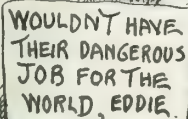 WOULDN'T HAVE
THEIR DANGEROUS
JOB FOR THE
WORLD, EDDIE.